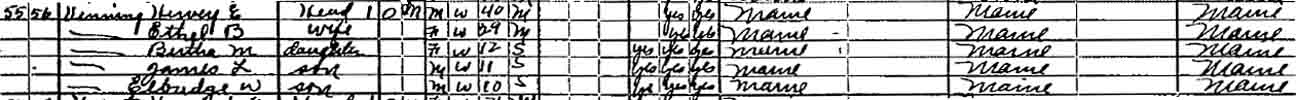 55 56 Henning Hervey E Head 1 O M M W 40 M yes yes Maine Maine Maine
— Ethel B wife F W 29 M yes yes Maine Maine Maine
— Bertha M daughter F W 12 S yes yes yes Maine Maine Maine
— James L son M W 11 S yes yes yes Maine Maine Maine
— Elbridge W son M W 10 S yes yes yes Maine Maine Maine